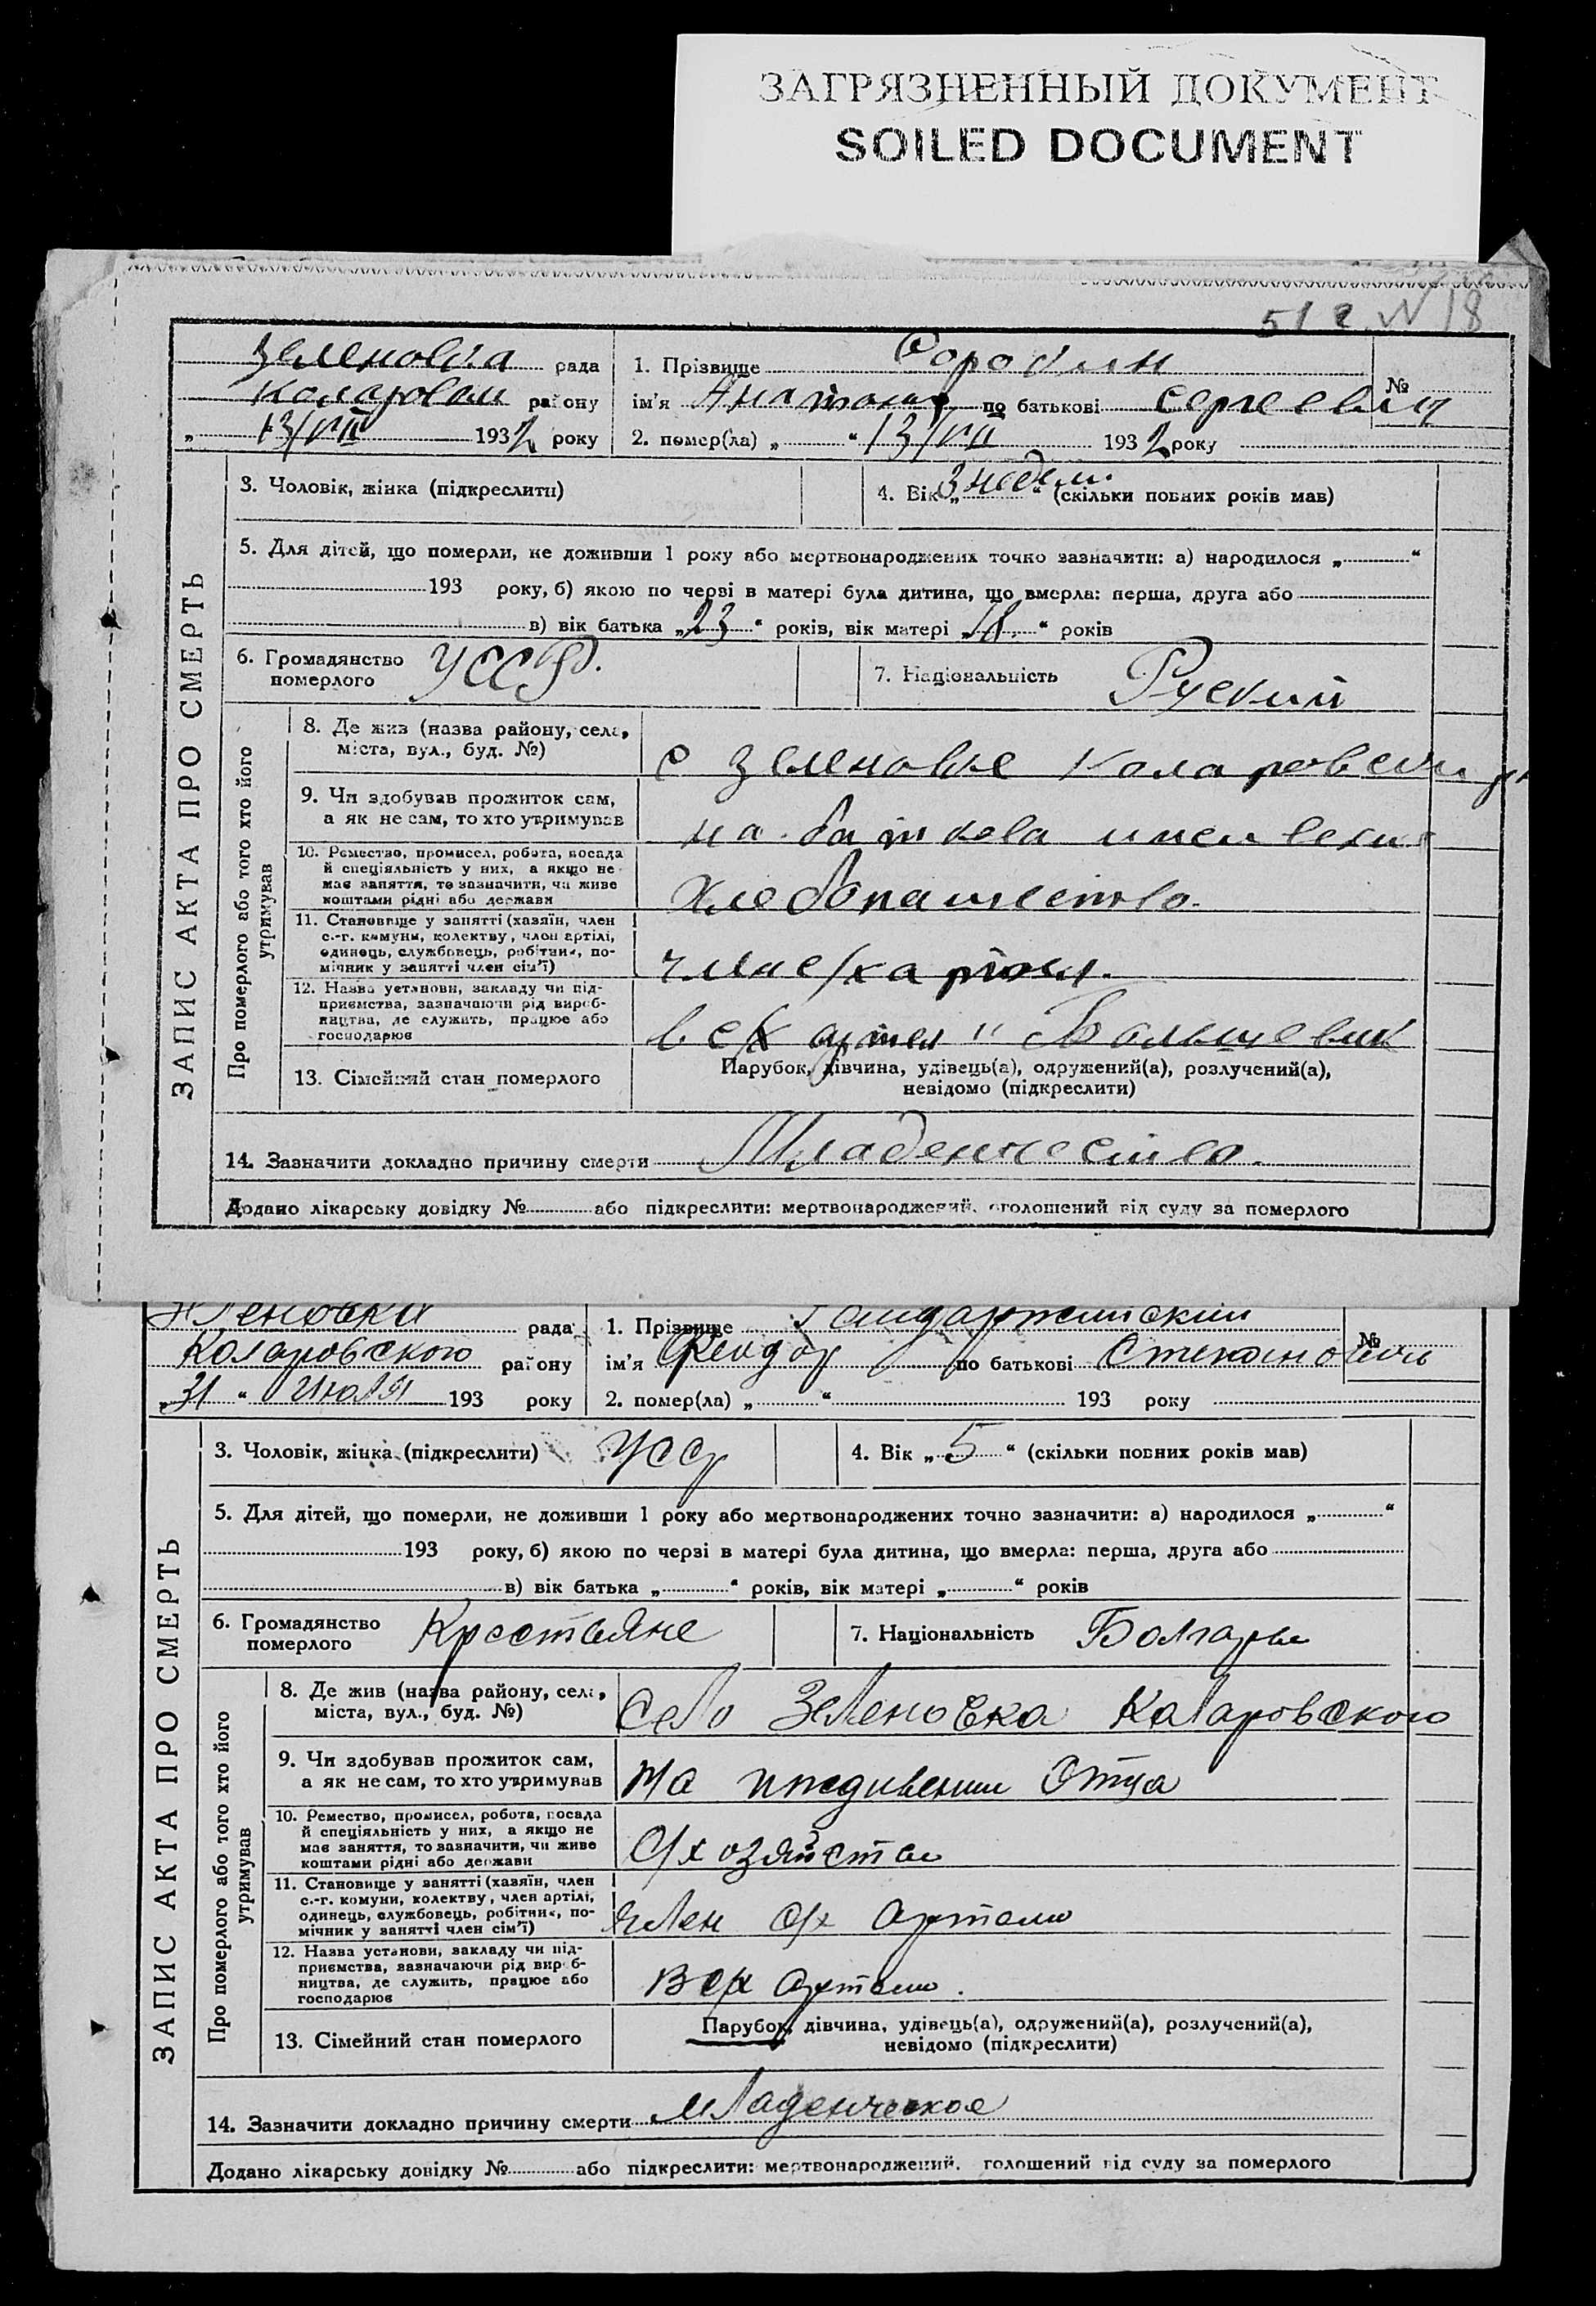 ЗАГРЯЗНЕННЫЙ ДОКУМЕНТ
SOILED DOCUMENT
512 N 18
Зеленовка рада
Коларовск району
„ 13/VII 1932 року
1. Прізвище Сорокин
№
ім'я по батькові Сергеевич
2. помер(ла) „ “ 13/VII 1932 року
ЗАПИС АКТА ПРО СМЕРТЬ
3. Чоловік, жінка (підкреслити)
4. Вік „ 3 недели “ (скільки повних років мав)
5. Для дітей, що померли, не доживши 1 року або мертвонароджених точно зазначити: а) народилося „ “
193 року, б) якою по черзі в матері була дитина, що вмерла: перша, друга або
в) вік батька „ 23 “ років, вік матері „ “ років
6. Громадянство
померлого
УССР.
7. Національність Руский
Про померлого або того хто його
утримував
8. Де жив (назва району, села,
міста, вул., буд. №)
с Зеленовке
9. Чи здобував прожиток сам,
а як не сам, то хто утримував
на
10. Ремество, промисел, робота, посада
й спеціяльність у них, а якщо не
має заняття, то зазначити, чи живе
коштами рідні або держави
Хлебопашество.
11. Становище у занятті (хазяїн, член
с.-г. комуни, колективу, член артілі,
одинець, службовець, робітник, по-
мічник у занятті член сім'ї)
12. Назва установи, закладу чи під-
приємства, зазначаючи рід вироб-
ництва, де служить, працює або
господарює
в с/х артел "Большевик
13. Сімейний стан померлого
Парубок, дівчина, удівець(а), одружений(а), розлучений(а),
невідомо (підкреслити)
14. Зазначити докладно причину смерти Младенчество.
Додано лікарську довідку № або підкреслити: мертвонароджений, оголошений від суду за померлого
рада
Коларовского району
„ 31 “ Июля 193 року
1. Прізвище
№
ім'я Феодор по батькові Степанович
2. помер(ла) „ “ 193 року
ЗАПИС АКТА ПРО СМЕРТЬ
3. Чоловік, жінка (підкреслити) УССР
4. Вік „ 5 “ (скільки повних років мав)
5. Для дітей, що померли, не доживши 1 року або мертвонароджених точно зазначити: а) народилося „ “
193 року, б) якою по черзі в матері була дитина, що вмерла: перша, друга або
в) вік батька „ “ років, вік матері „ “ років
6. Громадянство
померлого
Крестьяне
7. Національність Болгары
Про померлого або того хто його
утримував
8. Де жив (назва району, села,
міста, вул., буд. №)
Село Зеленовка Коларовского
9. Чи здобував прожиток сам,
а як не сам, то хто утримував
На иждивении Отца
10. Ремество, промисел, робота, посада
й спеціяльність у них, а якщо не
має заняття, то зазначити, чи живе
коштами рідні або держави
11. Становище у занятті (хазяїн, член
с.-г. комуни, колективу, член артілі,
одинець, службовець, робітник, по-
мічник у занятті член сім'ї)
Член с/х Артели
12. Назва установи, закладу чи під-
приємства, зазначаючи рід вироб-
ництва, де служить, працює або
господарює
В с/х Артели.
13. Сімейний стан померлого
Парубок, дівчина, удівець(а), одружений(а), розлучений(а),
невідомо (підкреслити)
14. Зазначити докладно причину смерти младенческое
Додано лікарську довідку № або підкреслити: мертвонароджений, голошений від суду за померлого